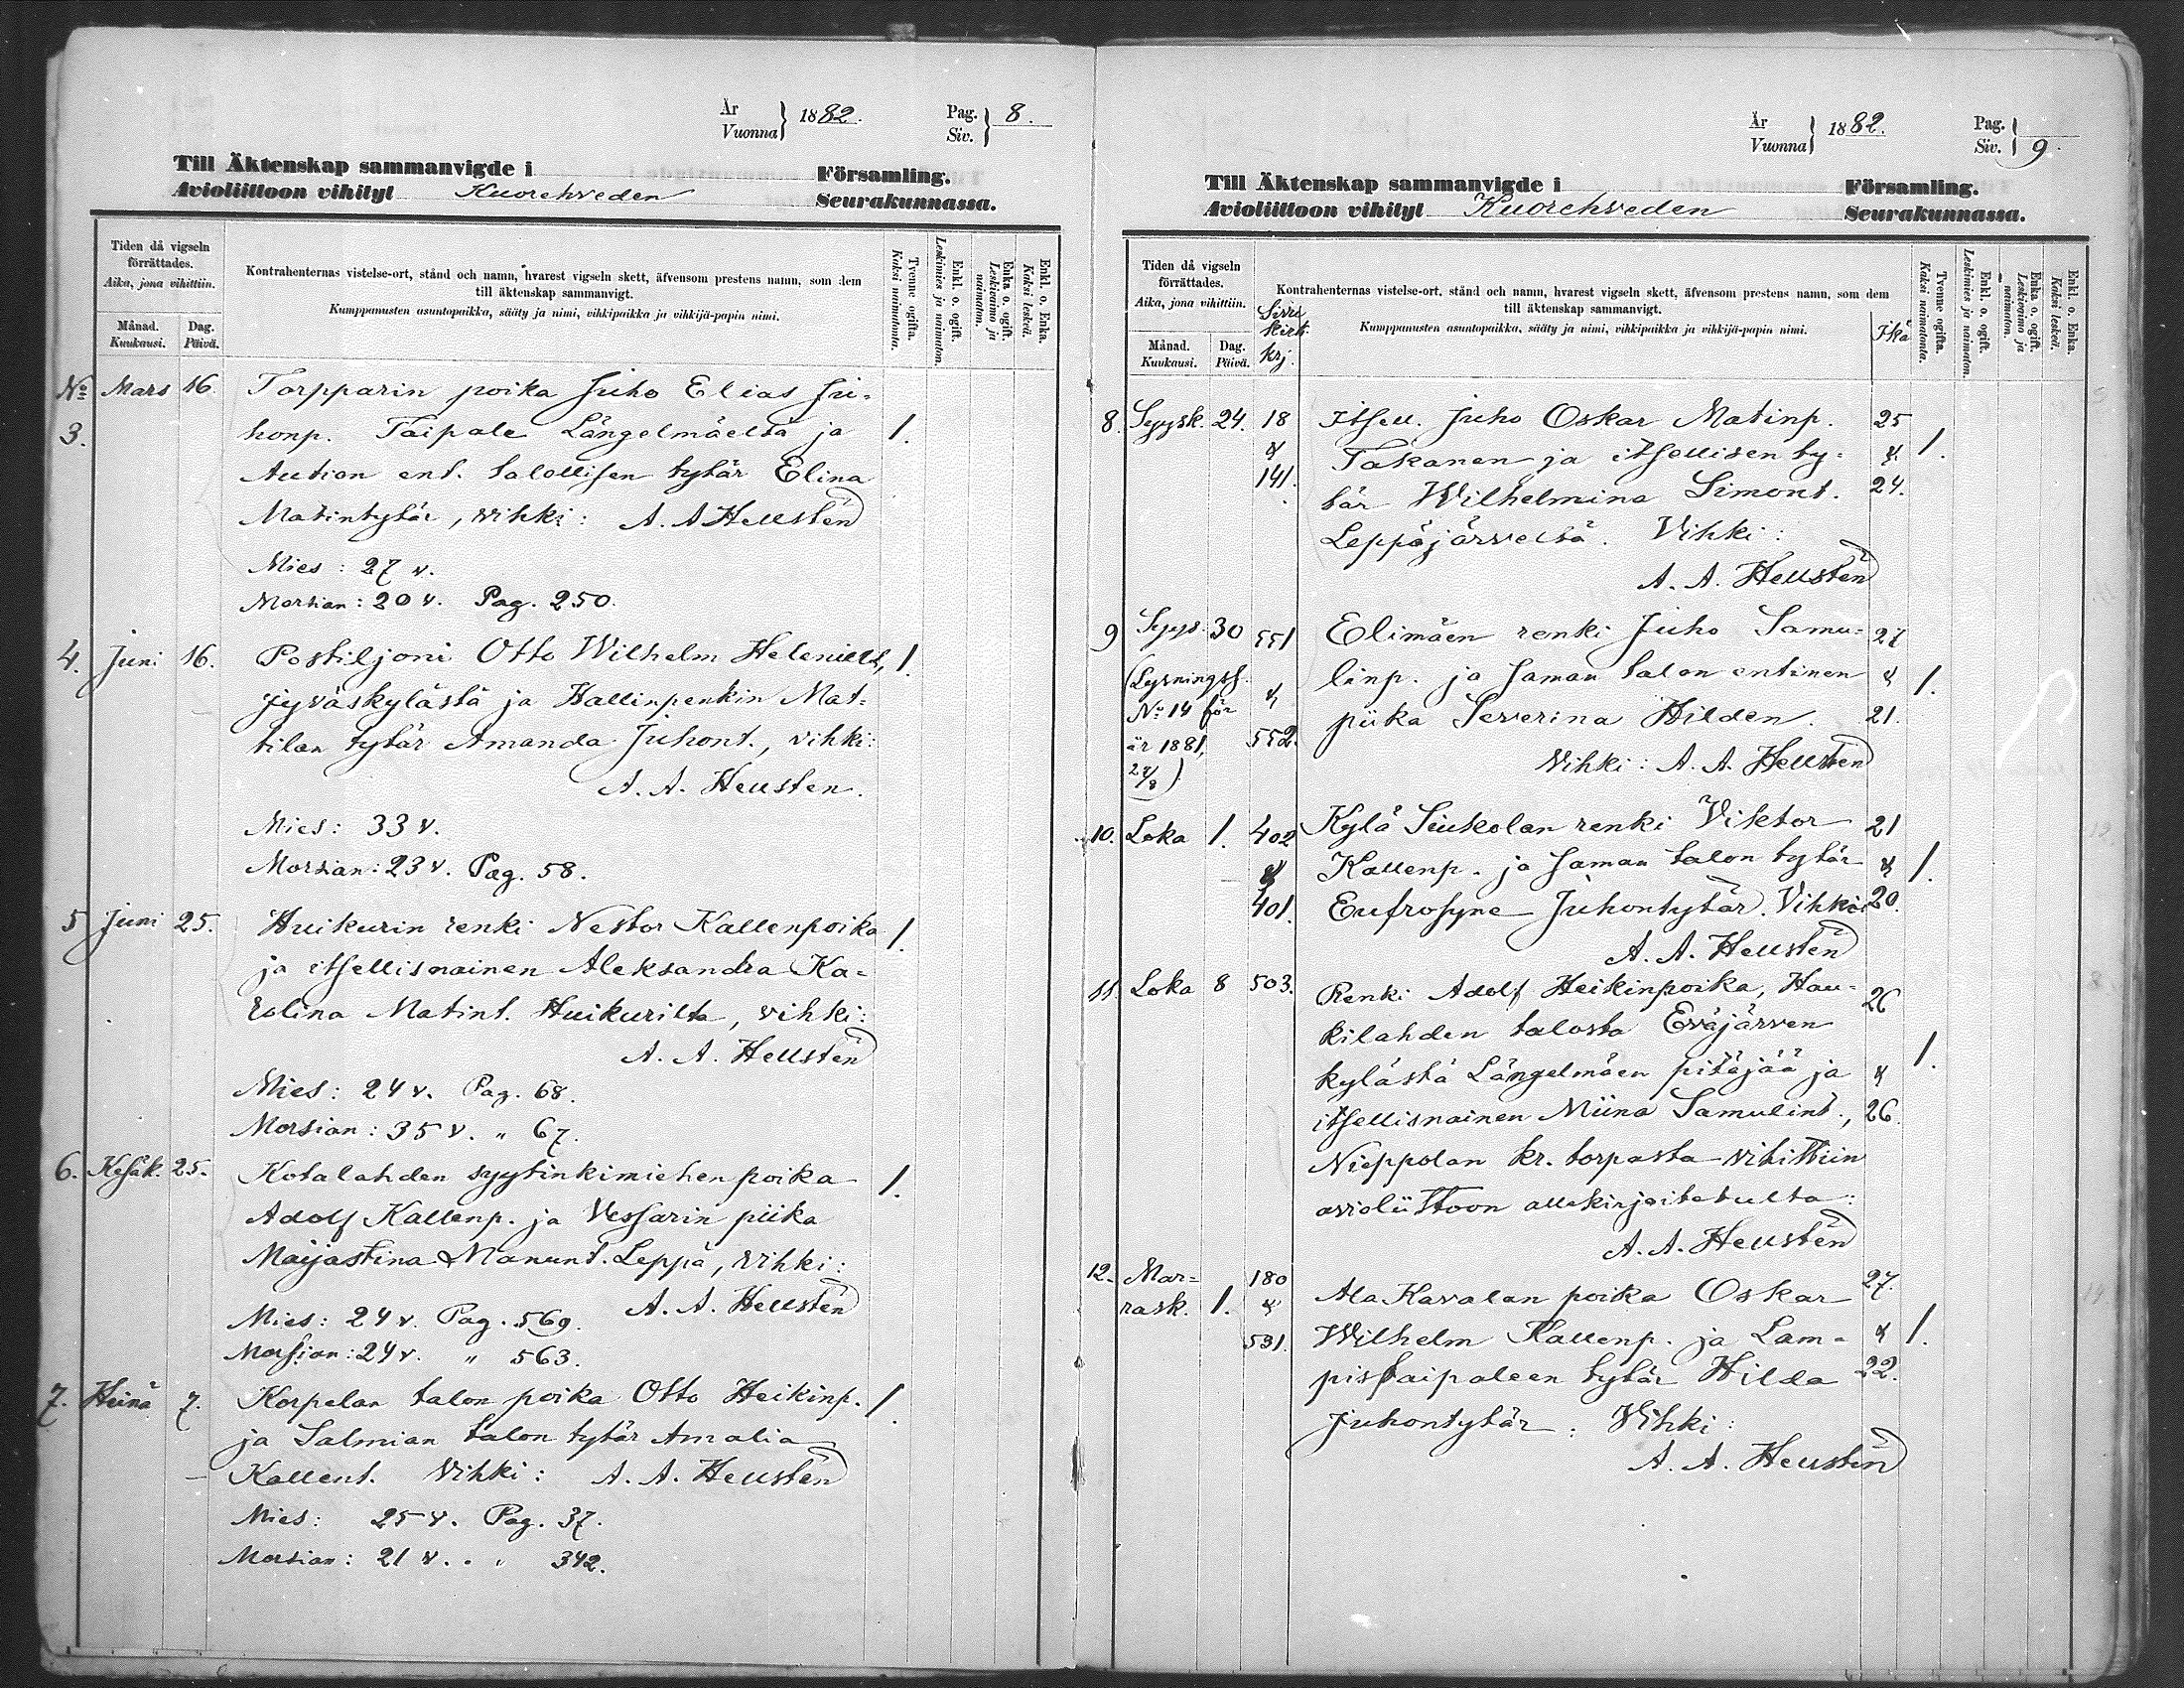 År
Vuonna } 1882.
Pag.
Siv. } 8.
Till Äktenskap sammanvigde i Församling.
Avioliittoon vihityt Kuorehveden Seurakunnassa.
Tiden då vigseln
förrättades.
Aika, jona vihittiin.
Månad.
Kuukausi.
Dag.
Päivä.
Kontrahenternas vistelse-ort, stånd och namn, hvarest vigseln skett, äfvensom prestens namn, som dem
till äktenskap sammanvigt.
Kumppanusten asuntopaikka, sääty ja nimi, vihkipaikka ja vihkijä-papin nimi.
Tvenne ogifta.
Kaksi naimatonta.
Enkl. o. ogift.
Leskimies ja naimaton.
Enka o. ogift.
Leskivaimo ja
naimaton.
Enkl. o. Enka.
Kaksi leskeä.
No Mars 16. Torpparin poika Juho Elias Ju-
3. honp. Taipale Längelmäeltä ja 1.
Aution ent. talollisen tytär Elina
Matintytär, vihki: A. A Hellstén
Mies: 27 v.
Morsian: 20 v. Pag. 250.
4. Juni 16. Postiljoni Otto Wilhelm Helenius, 1.
Jyväskylästä ja Hallinpenkin Mat-
tilan tytär Amanda Juhont., vihki:
A. A. Hellsten.
Mies: 33 v.
Morsian: 23 v. Pag. 58.
5 Juni 25. Huikurin renki Nestor Kallenpoika 1.
ja itsellisnainen Aleksandra Ka-
rolina Matint. Huikurilta, vihki:
A. A. Hellstén
Mies: 24 v. Pag. 68.
Morsian: 35 v. " 67.
6. Kesäk. 25. Kotalahden syytinkimiehen poika 1.
Adolf Kallenp. ja Vessarin piika
Maijastina Manunt. Leppä, vihki:
A. A. Hellstén
Mies: 24 v. Pag. 569.
Morsian: 24 v. " 563.
7. Heinä 7. Korpelan talon poika Otto Heikinp. 1.
ja Salmian talon tytär Amalia
Kallent. Vihki: A. A. Hellstén
Mies: 25 v. Pag. 37.
Morsian: 21 v. " 342.
År
Vuonna } 1882.
Pag.
Siv. } 9.
Till Äktenskap sammanvigde i Församling.
Avioliittoon vihityt Kuorehveden Seurakunnassa.
Tiden då vigseln
förrättades.
Aika, jona vihittiin.
Månad.
Kuukausi.
Dag.
Päivä.
kirk.
krj.
Kontrahenternas vistelse-ort, stånd och namn, hvarest vigseln skett, äfvensom prestens namn, som dem
till äktenskap sammanvigt.
Kumppanusten asuntopaikka, sääty ja nimi, vihkipaikka ja vihkijä-papin nimi.
Ikä
Tvenne ogifta.
Kaksi naimatonta.
Enkl. o. ogift.
Leskimies ja naimaton.
Enka o. ogift.
Leskivaimo ja
naimaton.
Enkl. o. Enka.
Kaksi leskeä.
8. Syysk. 24. 18 Itsell. Juho Oskar Matinp. 25
& Takanen ja itsellisen ty- & 1.
141. tär Wilhelmina Simont. 24.
Leppäjärveltä. Vihki:
A. A. Hellstén
9 Syys. 30 551 Elimäen renki Juho Samu- 27
(Lysningsf. & linp. ja saman talon entinen & 1.
No 14 för
år 1881, 552. piika Severina Hilden. 21.
27/8). Vihki: A. A. Hellsten
10. Loka 1. 402 Kylä Siukolan renki Viktor 21
& Kallenp. ja saman talon tytär & 1.
401. Eufrosyne Juhontytär. Vihki: 20.
A. A. Hellstén
11. Loka 8 503. Renki Adolf Heikinpoika, Hau- 26
kilahden talosta Eväjärven
kylästä Längelmäen pitäjää ja & 1.
itsellisnainen Miina Samulint., 26.
Nieppolan kr. torpasta vihittiin
avioliittoon allekirjoitetulta:
A. A. Hellstén
12. Mar- 180 Ala Kavalan poika Oskar 27.
rask. 1. & Wilhelm Kallenp. ja Lam- & 1.
531. pistaipaleen tytär Hilda 22.
Juhontytär: Vihki:
A. A. Hellstén